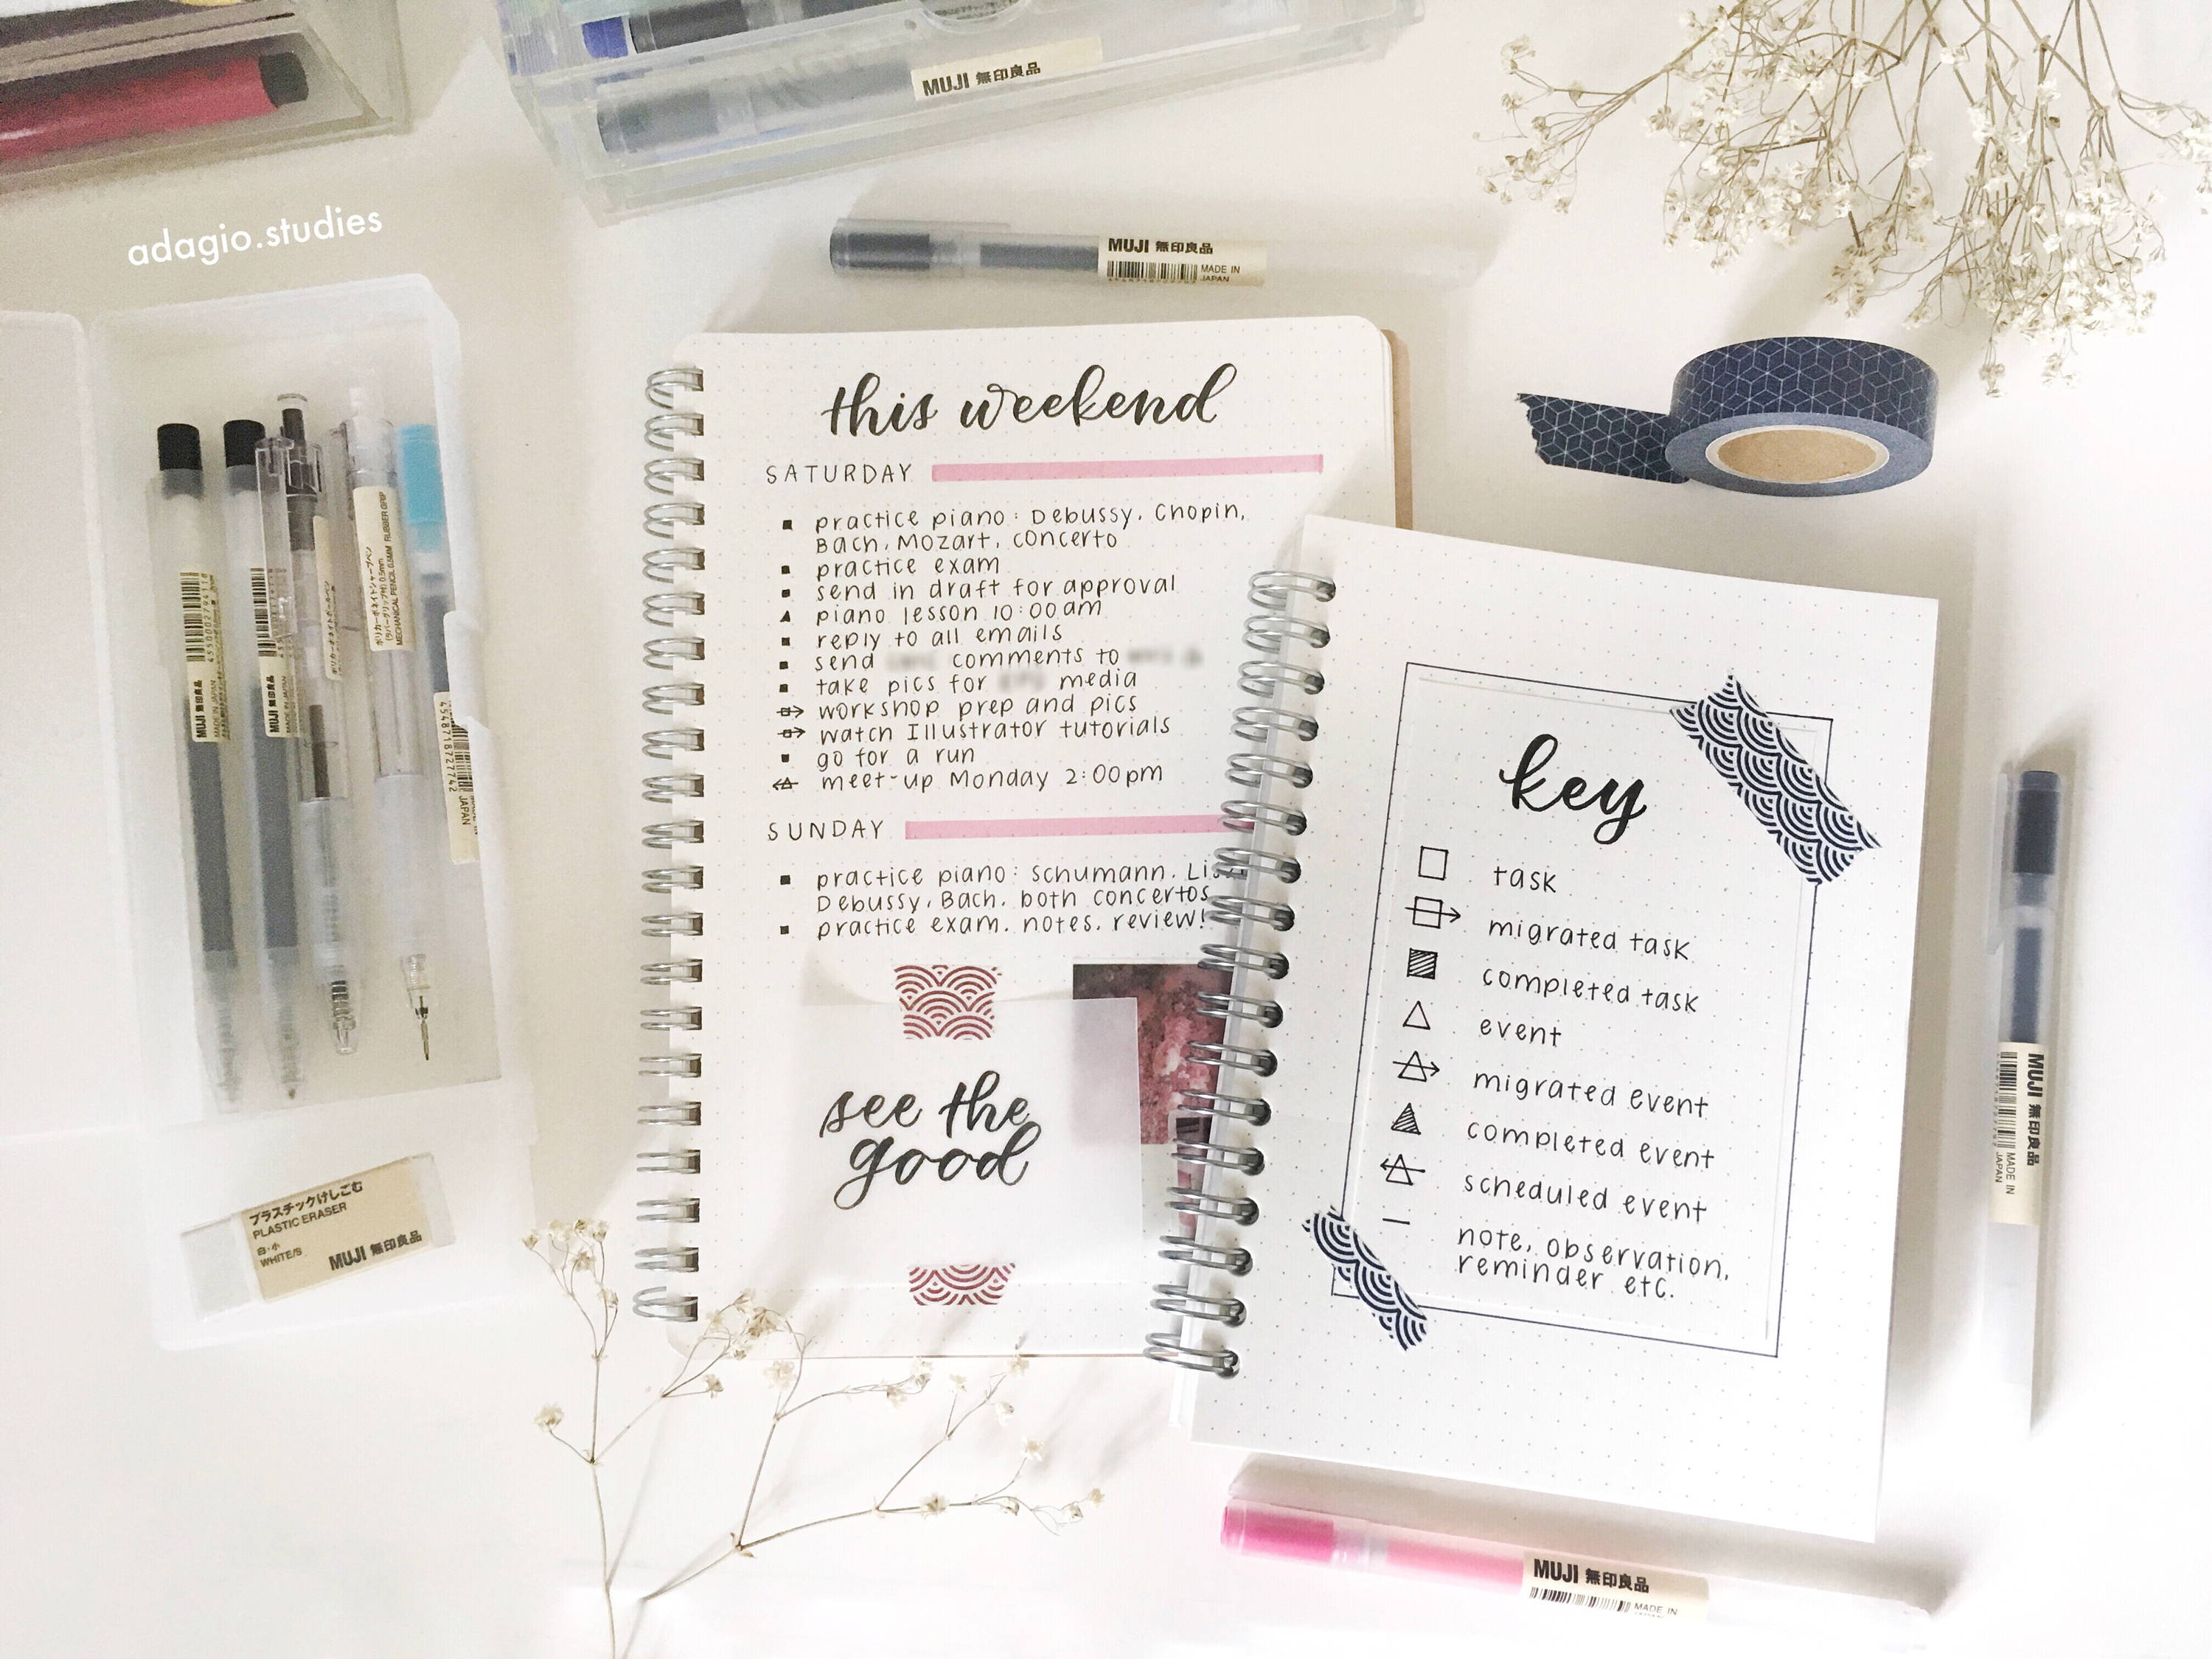 MUJI 無印良品
adagio.studies
MUJI 無印良品
MADE IN
JAPAN
this weekend
SATURDAY
practice piano: Debussy, Chopin,
Bach, Mozart, concerto
practice exam
send in draft for approval
piano lesson 10:00am
reply to all emails
send comments to
take pics for media
workshop prep and pics
watch Illustrator tutorials
go for a run
meet-up Monday 2:00pm
SUNDAY
practice piano: Schumann,
Debussy, Bach, both concertos
practice exam, notes, review!
see the
good
key
task
migrated task
completed task
event
migrated event
completed event
scheduled event
note, observation,
reminder etc.
MUJI 無印良品
MADE IN JAPAN
MUJI 無印良品
MADE IN JAPAN
ポリカーボネイトシャープペン
(ラバーグリップ付) 0.5mm
MECHANICAL PENCIL 0.5MM RUBBER GRIP
4548718727742
JAPAN
プラスチックけしごむ
PLASTIC ERASER
白・小
WHITE/S
MUJI 無印良品
MUJI 無印良品
MADE IN
JAPAN
MUJI 無印良品
MADE IN